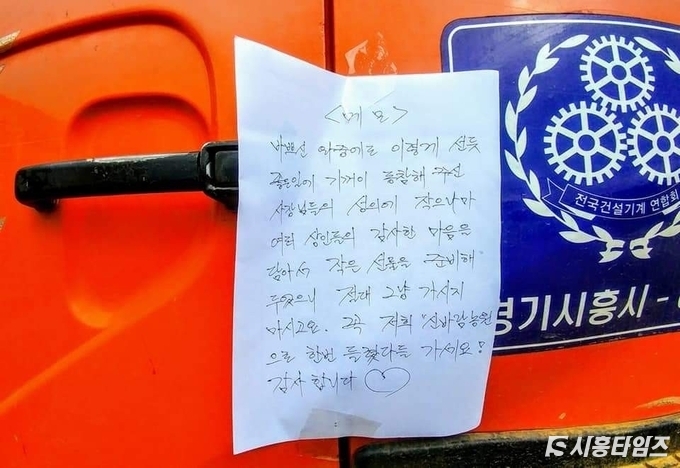 <메모>
바쁘신 와중에도 이렇게 선뜻
좋은일에 기꺼이 동참해 주신
사장님들의 성의에 작으나마
여러 상인들의 감사한 마음을
담아서 작은 선물을 준비해
두었으니 절대 그냥 가시지
마시고요. 그꼭 저희 "신바람농원
으로 한번 들렸다들 가세요!
감사합니다 ♡
전국건설기계 연합회
경기시흥시-
시흥타임즈